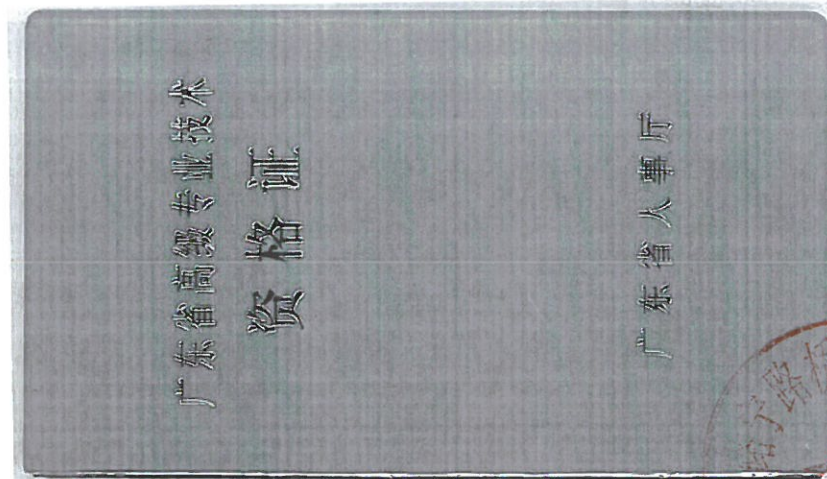 广东省高级专业技术
资格证
广东省人事厅